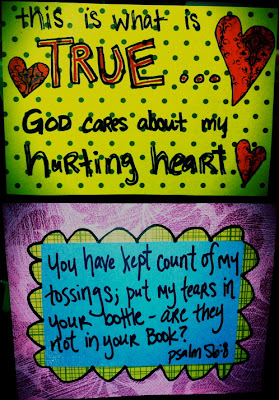 this is what is
TRUE...
GOD cares about my
hurting heart.
You have kept count of my
tossings; put my tears in
your bottle - are they
not in your Book?
psalm 56:8